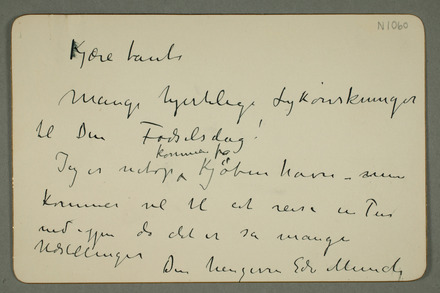 N1060
Kjære tante
Mange hjertelige Lykønskninger
til Din Fødselsdag!
kommen fra
Jeg er netop Kjøbenhavn – men
kommer vel til at reise en Tur
ned igjen da det er så mange
Udstillinger
Din hengivne Edv Munch